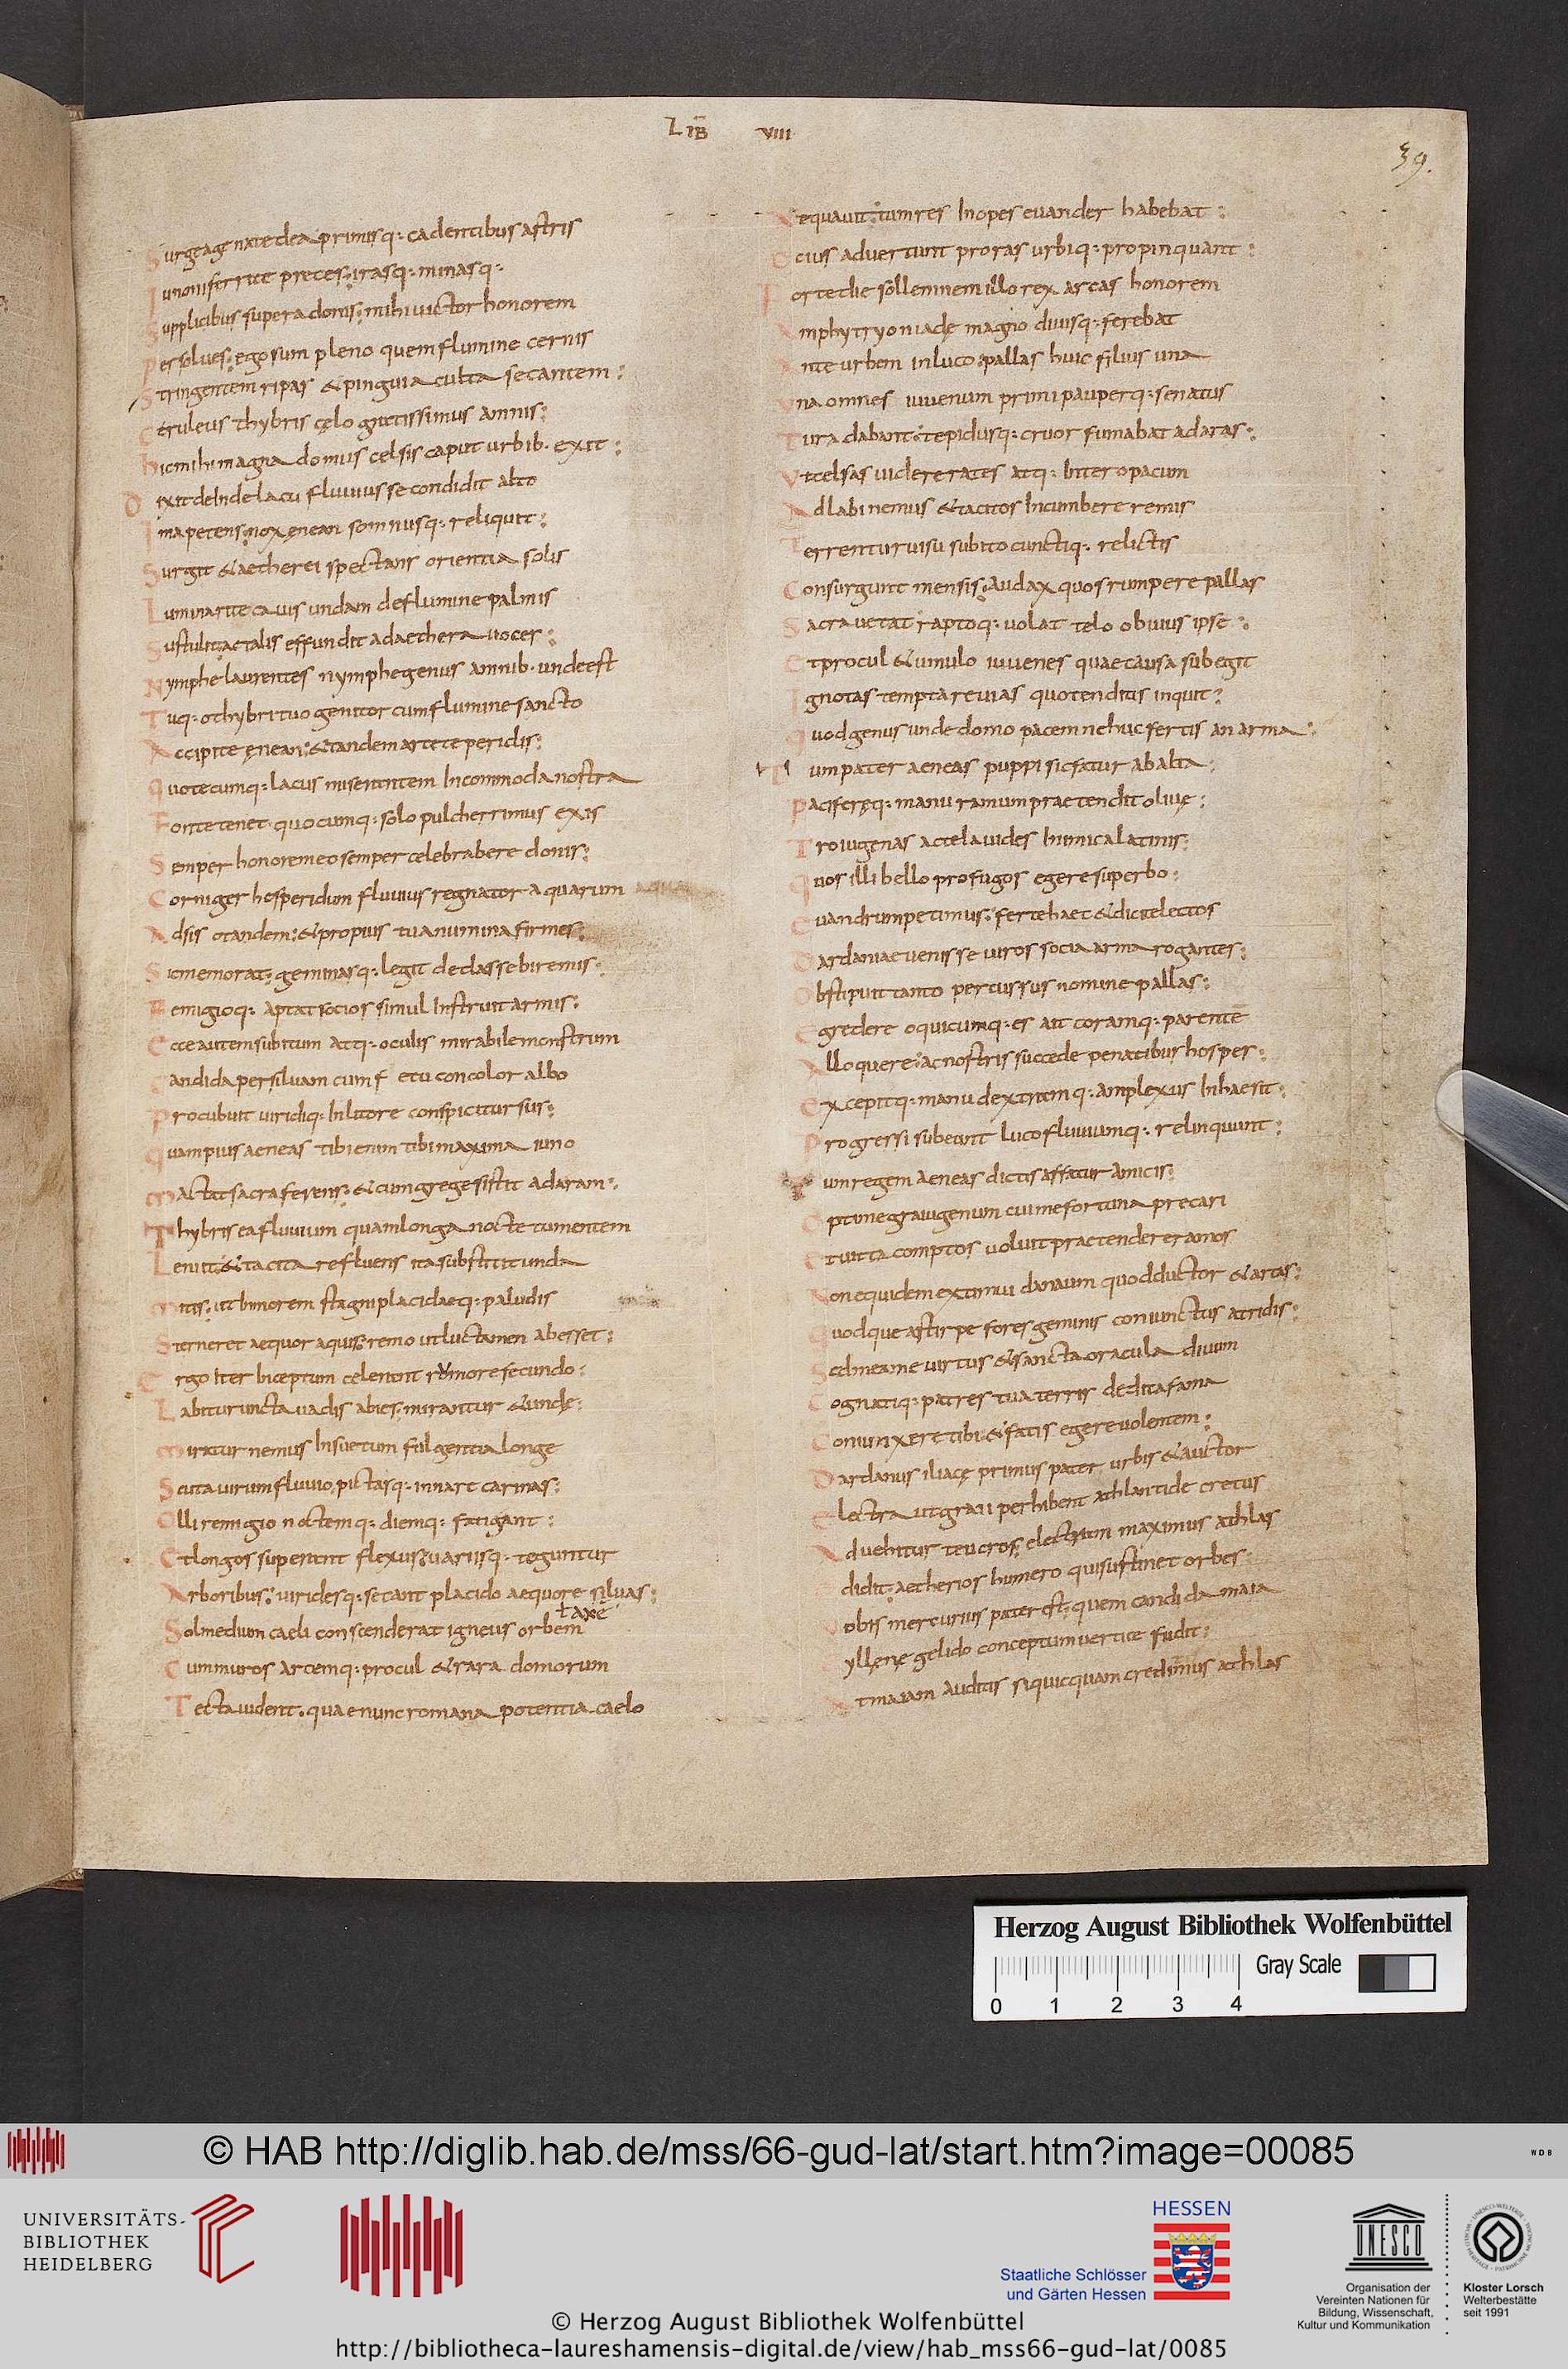 LIB VIII
39.
Surge age nate dea primisq: cadentibus astris
Iunoni fer rite preces: irasq: minasq:
Supplicibus supera donis: mihi uictor honorem
Persolues: ego sum pleno quem flumine cernis
Stringentem ripas & pinguia culta secantem:
Ceruleus thybris cęlo gratissimus amnis:
hic mihi magna domus celsis caput urbib. exit:
Dixit deinde lacu fluuius se condidit alto
Ima petens: nox ęnean somnusq: reliquit:
Surgit & aetherei spectans orientia solis
Lumina rite cauis undam de flumine palmis
Sustulit: ac talis effundit ad aethera uoces:
Nymphe laurentes nymphe genus amnib. unde est
Tuq: o thybri tuo genitor cum flumine sancto
Accipite ęnean: & tandem arcete periclis:
Quo te cumq: lacus miserantem Incommoda nostra
Fonte tenet quocumq: solo pulcherrimus exis
Semper honore meo semper celebrabere donis:
Corniger hesperidum fluuius regnator aquarum
Adsis o tandem: & propius tua numina firmes:
Sic memorat: geminasq: legit de classe biremis:
Remigioq: aptat socios simul Instruit armis:
Ecce autem subitum atq: oculis mirabile monstrum
Candida per siluam cum f etu concolor albo
Procubuit uiridiq: In litore conspicitur sus:
Quam pius aeneas tibi enim tibi maxima iuno
Mactat sacra ferens: & cum grege sistit ad aram:
Thybris ea fluuium quam longa nocte tumentem
Leniit: & tacita refluens ita substitit unda
Mitis: ut In morem stagni placidaeq: paludis
Sterneret aequor aquis: remo ut luctamen abesset:
Ergo Iter Inceptum celerant rumore secundo:
Labitur uncta uadis abies: mirantur & undę:
Miratur nemus Insuetum fulgentia longe
Scuta uirum fluuio, pictasq: innare carinas:
Olli remigio noctemq: diemq: fatigant:
Et longos superant flexus: uariisq: teguntur
Arboribus: uiridesq: secant placido aequore siluas:
ł axe
Sol medium caeli conscenderat igneus orbem
Cum muros arcemq: procul & rara domorum
Tecta uident. quae nunc romana potentia caelo
Aequauit: tum res Inopes euander habebat:
Ocius aduertunt proras urbiq: propinquant:
Forte die sollemnem illo rex arcas honorem
Amphytryoniadę magno diuisq: ferebat
Ante urbem in luco: pallas huic filius una
Una omnes iuuenum primi pauperq: senatus
Tura dabant: tepidusq: cruor fumabat ad aras:
Vt celsas uidere rates atq: Inter opacum
Adlabi nemus & tacitos Incumbere remis
Terrentur uisu subito cunctiq: relictis
Consurgunt mensis: Audax quos rumpere pallas
Sacra uetat raptoq: uolat telo obuius ipse:
Et procul & umulo iuuenes quae causa subegit
Ignotas temptare uias quo tenditis inquit:
Quod genus unde domo pacemne huc fertis an arma:
Tum pater aeneas puppi sic fatur ab alta:
Paciferęq: manu ramum praetendit oliuę:
Troiugenas ac tela uides Inimica latinis:
Quos illi bello profugos egere superbo:
Euandrum petimus: ferte haec & dicite lectos
Dardaniae uenisse uiros socia arma rogantes:
Obstipuit tanto percussus nomine pallas:
Egredere o quicumq: es ait coramq: parentē
Alloquere: ac nostris succede penatibus hospes:
Excepitq: manu dextramq: amplexus Inhaesit:
Progressi subeunt luco fluuiumq: relinquunt:
Tum regem Aeneas dictis affatur amicis:
Optime graiugenum cui me fortuna precari
Et uitta comptos uoluit praetendere ramos
Non equidem extimui danaum quod ductor & arcas:
Quodque a stirpe fores geminis coniunctus atridis:
Sed mea me uirtus & sancta oracula diuum
Cognatiq: patres tua terris dedita fama
Coniunxere tibi: & fatis egere uolentem:
Dardanus iliacę primus pater urbis & auctor
Electra ut grau perhibent athlantide cretus
Aduehitur teucros: electram maximus athlas
Edidit: aetherios humero qui sustinet orbes:
Vobis mercurius pater est: quem candida maia
Cyllęnę gelido conceptum uertice fudit:
At maiam Auditis si quicquam credimus athlas
Herzog August Bibliothek Wolfenbüttel
0 1 2 3 4
Gray Scale
© HAB http://diglib.hab.de/mss/66-gud-lat/start.htm?image=00085
WDB
UNIVERSITÄTS-
BIBLIOTHEK
HEIDELBERG
Staatliche Schlösser
und Gärten Hessen
HESSEN
UNESCO
Organisation der
Vereinten Nationen für
Bildung, Wissenschaft,
Kultur und Kommunikation
Kloster Lorsch
Welterbestätte
seit 1991
© Herzog August Bibliothek Wolfenbüttel
http://bibliotheca-laureshamensis-digital.de/view/hab_mss66-gud-lat/0085